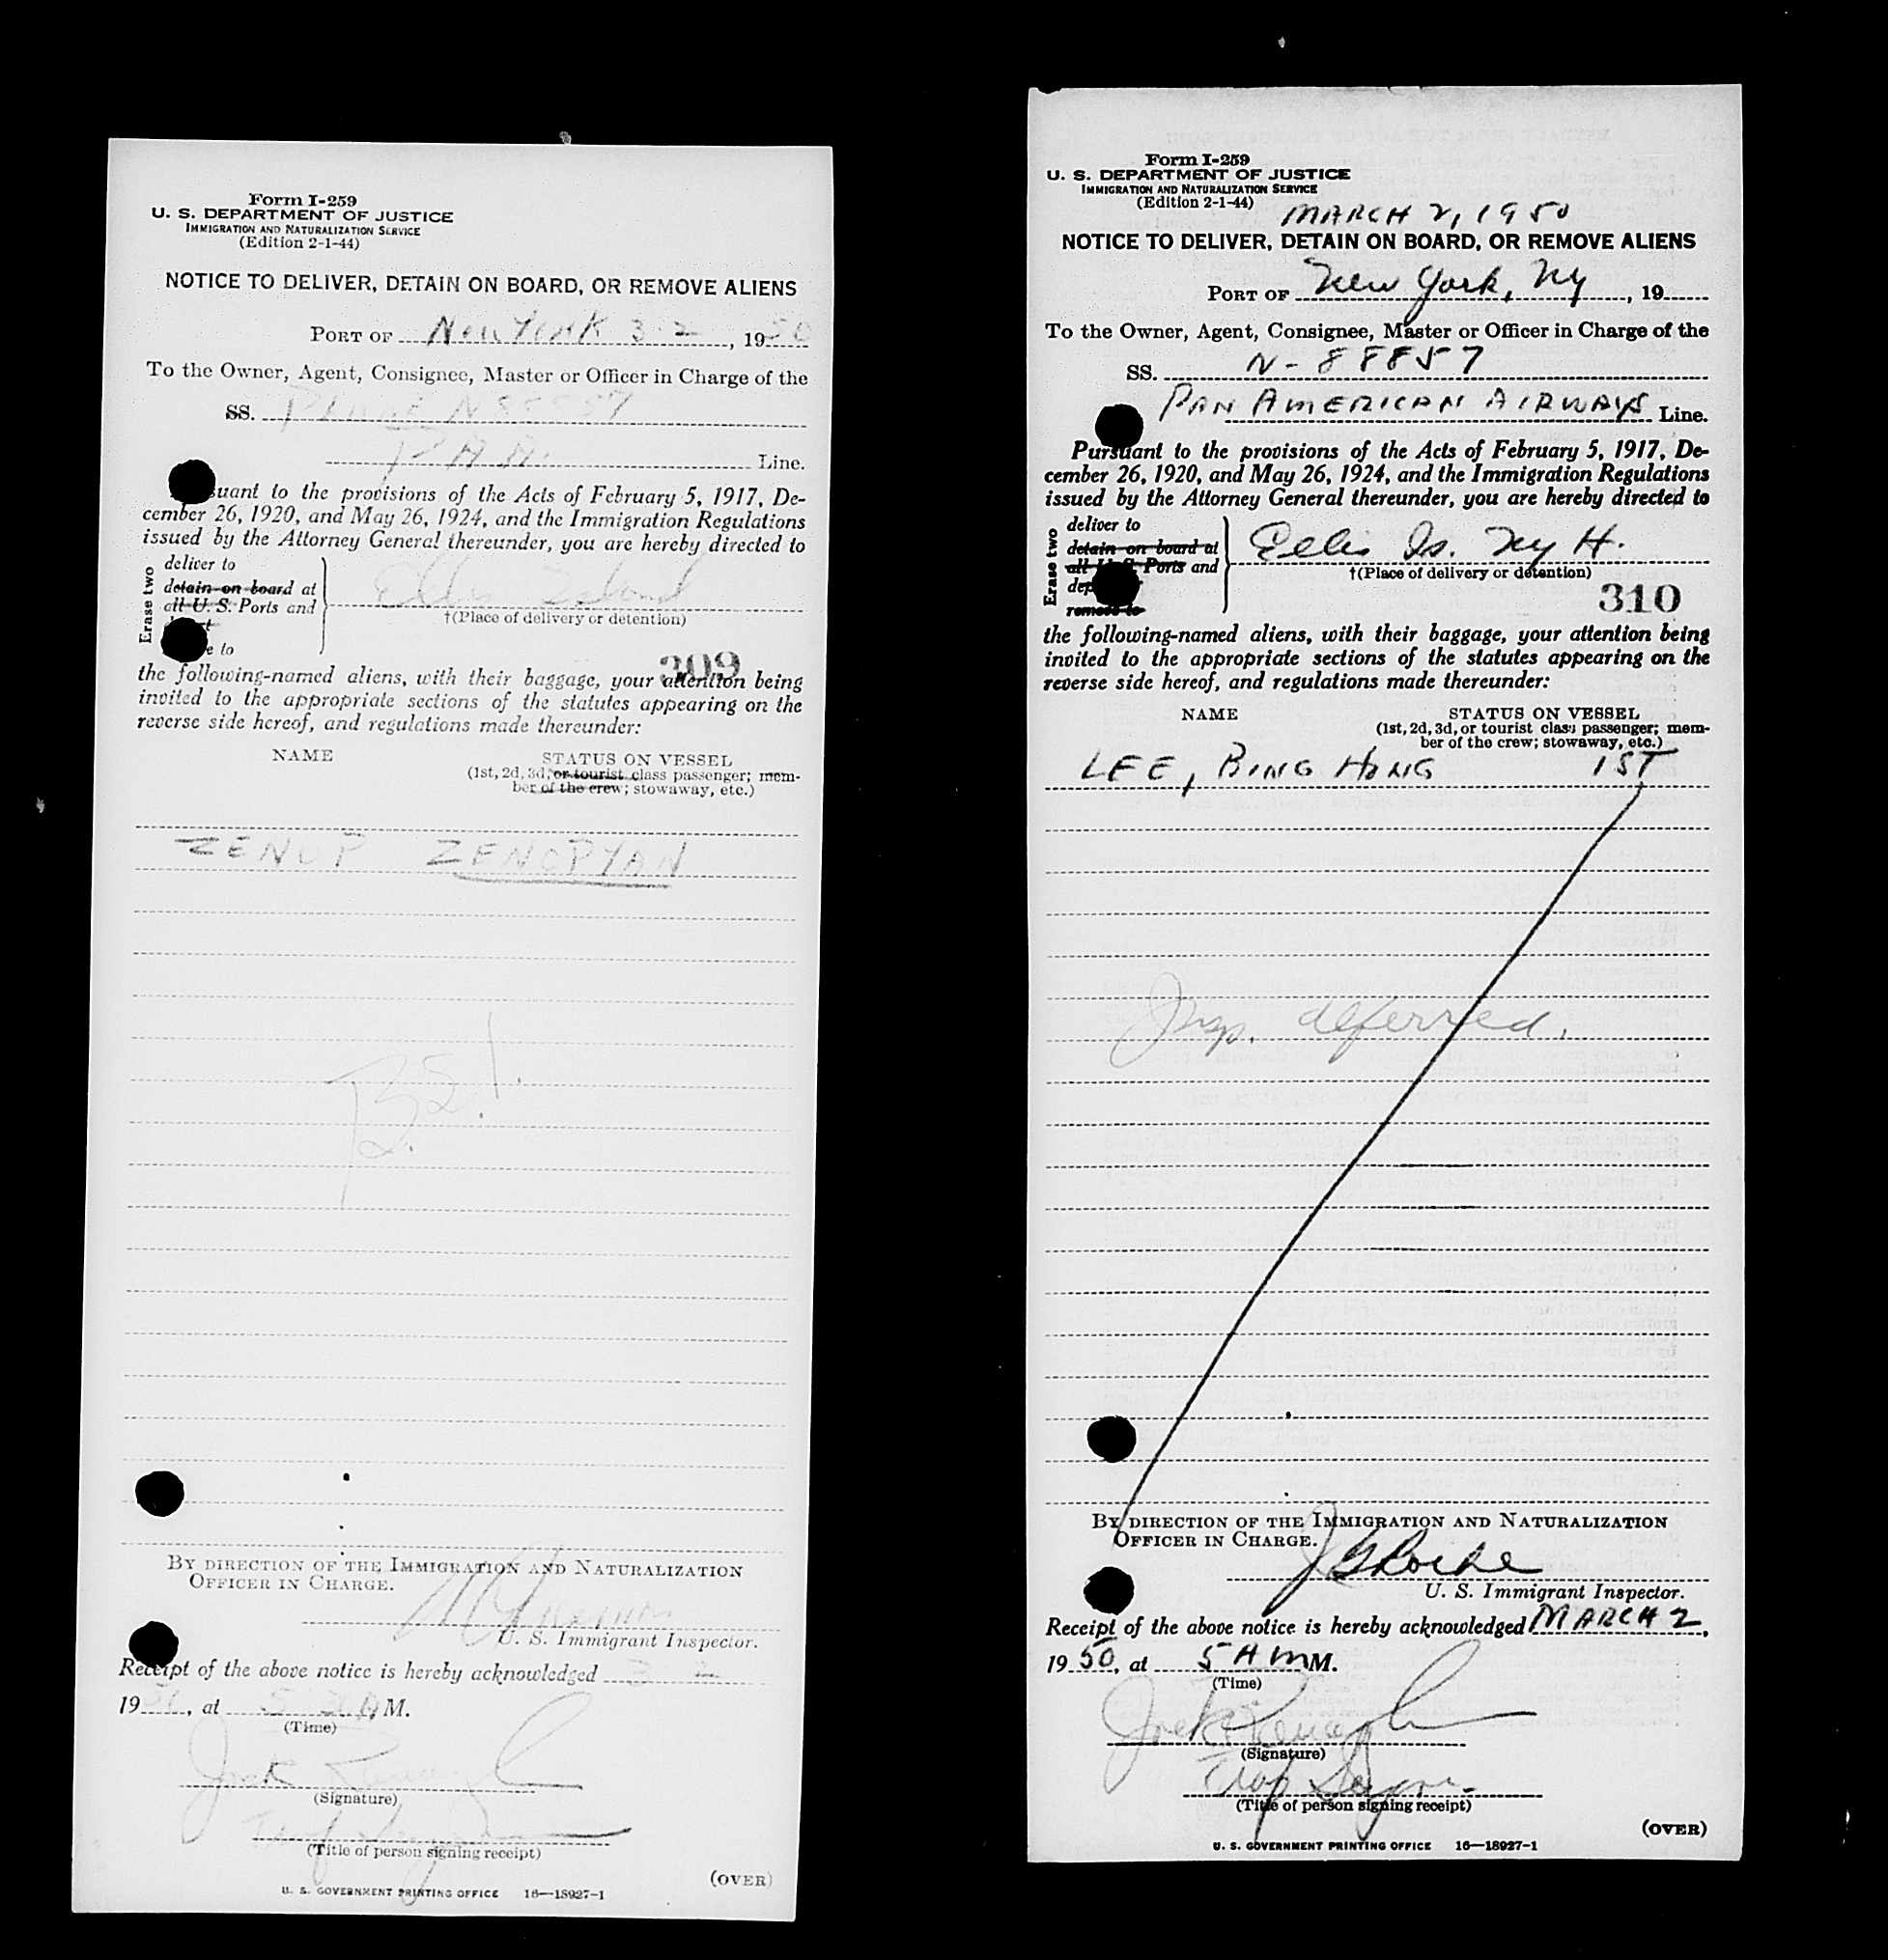 Form I-259
U. S. DEPARTMENT OF JUSTICE
IMMIGRATION AND NATURALIZATION SERVICE
(Edition 2-1-44)
NOTICE TO DELIVER, DETAIN ON BOARD, OR REMOVE ALIENS
PORT OF New York 3-2, 1950
To the Owner, Agent, Consignee, Master or Officer in Charge of the
SS. Plane N 88857
P A A. Line.
suant to the provisions of the Acts of February 5, 1917, De-
cember 26, 1920, and May 26, 1924, and the Immigration Regulations
issued by the Attorney General thereunder, you are hereby directed to
Erase two
deliver to
detain on board at
all U. S. Ports and
e to
Ellis Island
†(Place of delivery or detention)
309
the following-named aliens, with their baggage, your attention being
invited to the appropriate sections of the statutes appearing on the
reverse side hereof, and regulations made thereunder:
NAME STATUS ON VESSEL
(1st, 2d, 3d, or tourist class passenger; mem-
ber of the crew; stowaway, etc.)
ZENOP ZENOPYAN
BY DIRECTION OF THE IMMIGRATION AND NATURALIZATION
OFFICER IN CHARGE.
U. S. Immigrant Inspector.
Receipt of the above notice is hereby acknowledged 3 2
19, at A M.
(Time)
Jack
(Signature)
(Title of person signing receipt)
(OVER)
U. S. GOVERNMENT PRINTING OFFICE 16—18927-1
Form I-259
U. S. DEPARTMENT OF JUSTICE
IMMIGRATION AND NATURALIZATION SERVICE
(Edition 2-1-44)
MARCH 2, 1950
NOTICE TO DELIVER, DETAIN ON BOARD, OR REMOVE ALIENS
PORT OF New York, Ny, 19
To the Owner, Agent, Consignee, Master or Officer in Charge of the
SS. N-88857
PAN AMERICAN AIRWAYS Line.
Pursuant to the provisions of the Acts of February 5, 1917, De-
cember 26, 1920, and May 26, 1924, and the Immigration Regulations
issued by the Attorney General thereunder, you are hereby directed to
Erase two
deliver to
detain on board at
all U. S. Ports and
dep
remove to
Ellis Is. Ny H.
†(Place of delivery or detention)
310
the following-named aliens, with their baggage, your attention being
invited to the appropriate sections of the statutes appearing on the
reverse side hereof, and regulations made thereunder:
NAME STATUS ON VESSEL
(1st, 2d, 3d, or tourist class passenger; mem-
ber of the crew; stowaway, etc.)
LEE, BING HONG 1ST
Insp. deferred.
BY DIRECTION OF THE IMMIGRATION AND NATURALIZATION
OFFICER IN CHARGE.
U. S. Immigrant Inspector.
Receipt of the above notice is hereby acknowledged MARCH 2,
1950, at 5 AM M.
(Time)
Jack
(Signature)
(Title of person signing receipt)
(OVER)
U. S. GOVERNMENT PRINTING OFFICE 16—18927-1